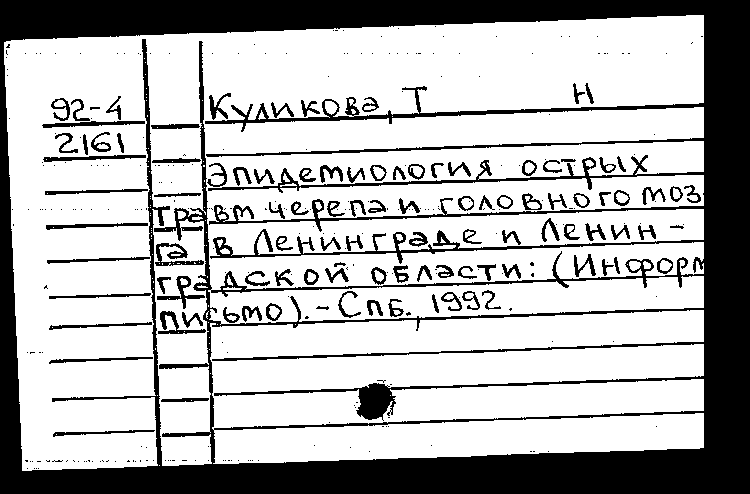 92-4 Куликова, Т Н
2161
Эпидемиология острых
травм черепа и головного моз-
га в Ленинграде и Ленин-
градской области: (Информ
письмо). - Спб., 1992.